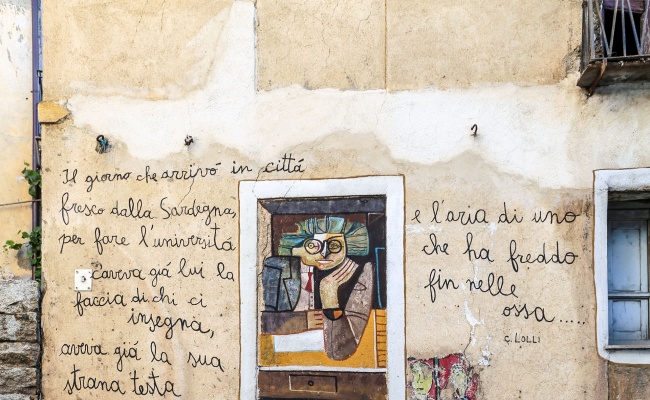 Il giorno che arrivó in cittá
fresco dalla Sardegna,
per fare l'universitá
aveva giá lui la
faccia di chi ci
insegna,
aveva giá la sua
strana testa
e l'aria di uno
che ha freddo
fin nelle
ossa.....
C. LOLLI